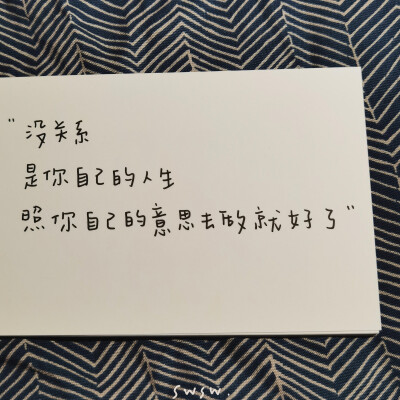 "没关系
是你自己的人生
照你自己的意思去做就好了"
swsw.